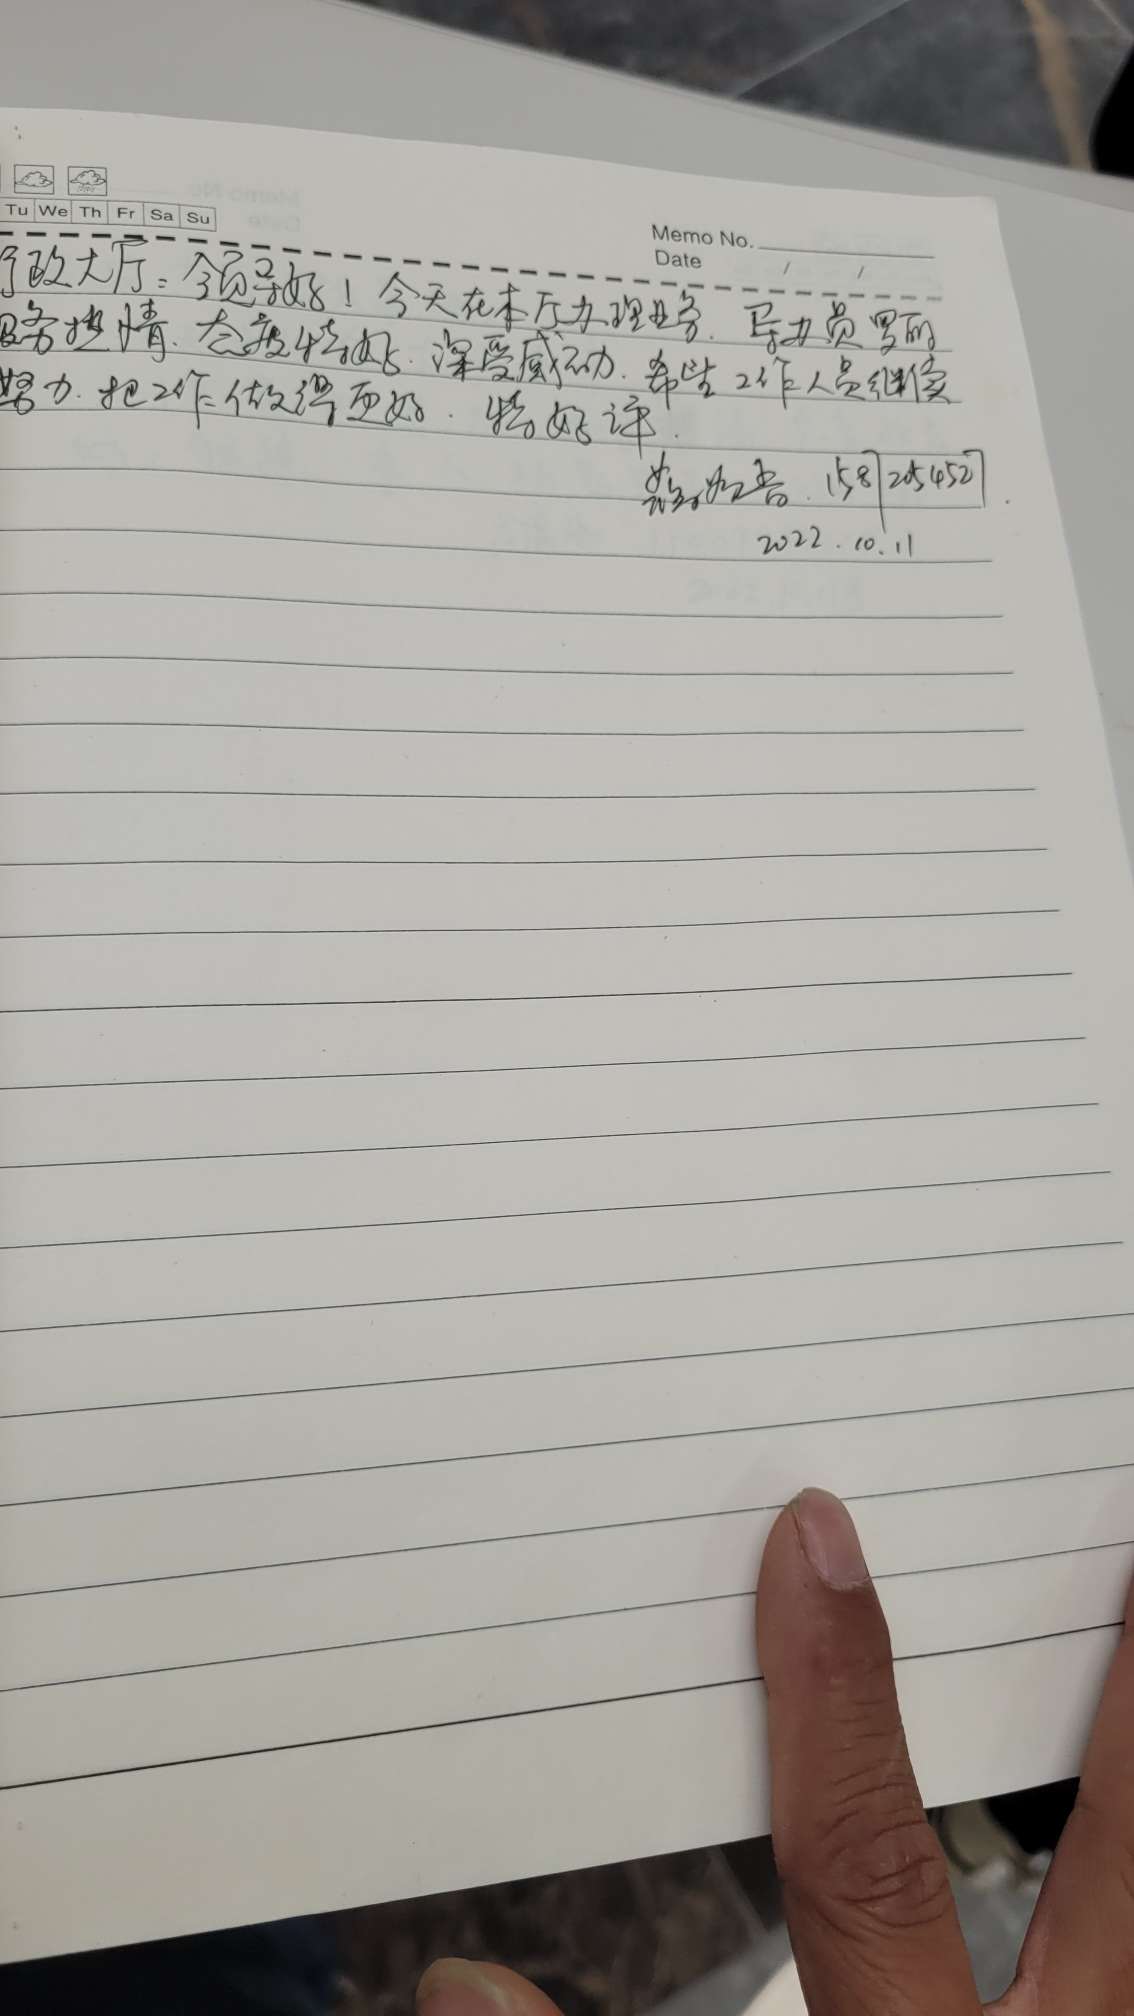 Tu We Th Fr Sa Su
Memo No.
Date / /
行政大厅：领导好！今天在本厅办理业务．导办员罗丽
服务热情．态度特好．深受感动．希望工作人员继续
努力．把工作做得更好．特好评．
2022.10.11